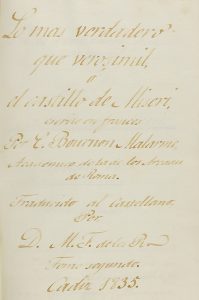 Lo mas verdadero
que verosimil,
o
el castillo de Miseri,
escrito en frances
Por C. Bournon Malarme,
Academica de la de los Arcades
de Roma.
Traducido al Castellano.
Por
D. M. F. de la R
Tomo segundo.
Cadiz 1835.